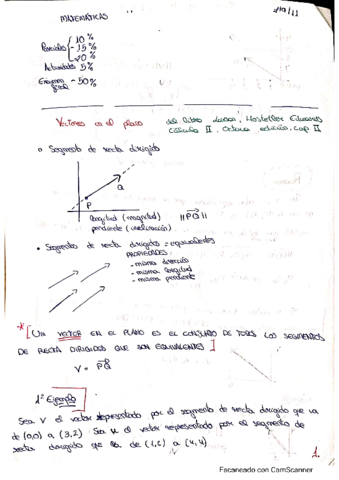 MATEMÁTICAS
10 %
Parciales - 15 %
20 %
Actividades 5 %
Examen final - 50 %
Vectores en el plano del libro Larson, Hostetler Edwards
Cálculo II. Octava edición. Cap II
Segmento de recta dirigido
Q
P
longitud (magnitud) ||PQ||
pendiente (inclinación)
Segmentos de recta dirigidos = equivalentes
PROPIEDADES:
- misma dirección
- misma longitud
- misma pendiente
* [UN VECTOR EN EL PLANO ES EL CONJUNTO DE TODOS LOS SEGMENTOS
DE RECTA DIRIGIDOS QUE SON EQUIVALENTES]
V = PQ
1º Ejemplo
Sea V el vector representado por el segmento de recta dirigido que va
de (0,0) a (3,2). Sea u el vector representado por el segmento de
recta dirigido que va de (1,2) a (4,4)
1.
Escaneado con CamScanner